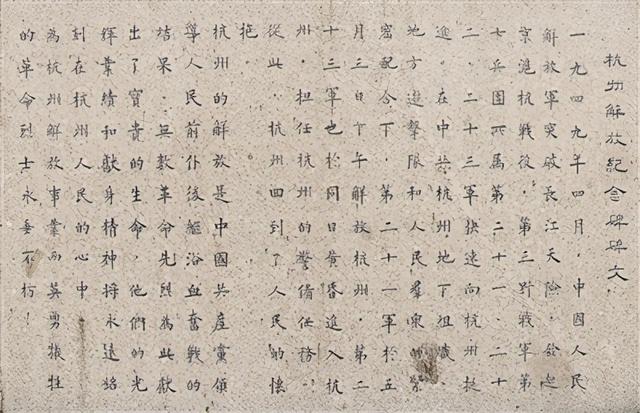 杭州解放紀念碑碑文
一九四九年四月，中国人民
解放軍突破長江天險，發起
京滬杭戰役，第三野戰軍第
七兵團所属第二十一、二十
二、二十三軍快速向杭州挺
進。在中共杭州地下組織、
地方遊擊隊和人民羣衆的緊
密配合下，第二十一軍於五
月三日下午解放杭州，第二
十三軍也於同日黄昏進入杭
州，担任杭州的警備任務。
從此，杭州回到了人民的懷
抱。
杭州的解放是中國共産黨領
導人民前仆後繼浴血奮戰的
结果。無數革命先烈為此獻
出了寶貴的生命，他們的光
輝業績和獻身精神將永遠銘
刻在杭州人民的心中。
為杭州解放事業而英勇犧牲
的革命烈士永垂不朽！